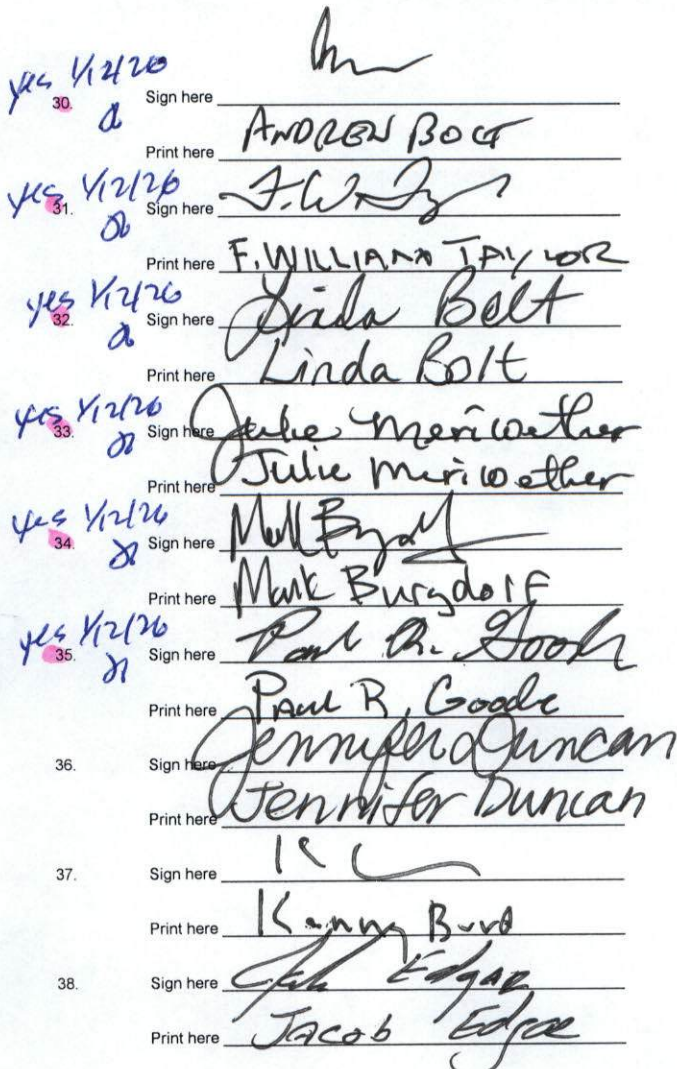 yes 1/12/26
30. Sign here
Print here ANDREW BOLT
yes 1/12/26
31. Sign here F.W.
Print here F. WILLIAM TAYLOR
yes 1/12/26
32. Sign here Linda Bolt
Print here Linda Bolt
yes 1/12/26
33. Sign here Julie Meriwether
Print here Julie Meriwether
yes 1/12/26
34. Sign here
Print here Mark Burgdorf
yes 1/12/26
35. Sign here Paul R. Goode
Print here Paul R. Goode
36. Sign here Jennifer Duncan
Print here Jennifer Duncan
37. Sign here
Print here Kenny
38. Sign here Edgar
Print here Jacob Edgar